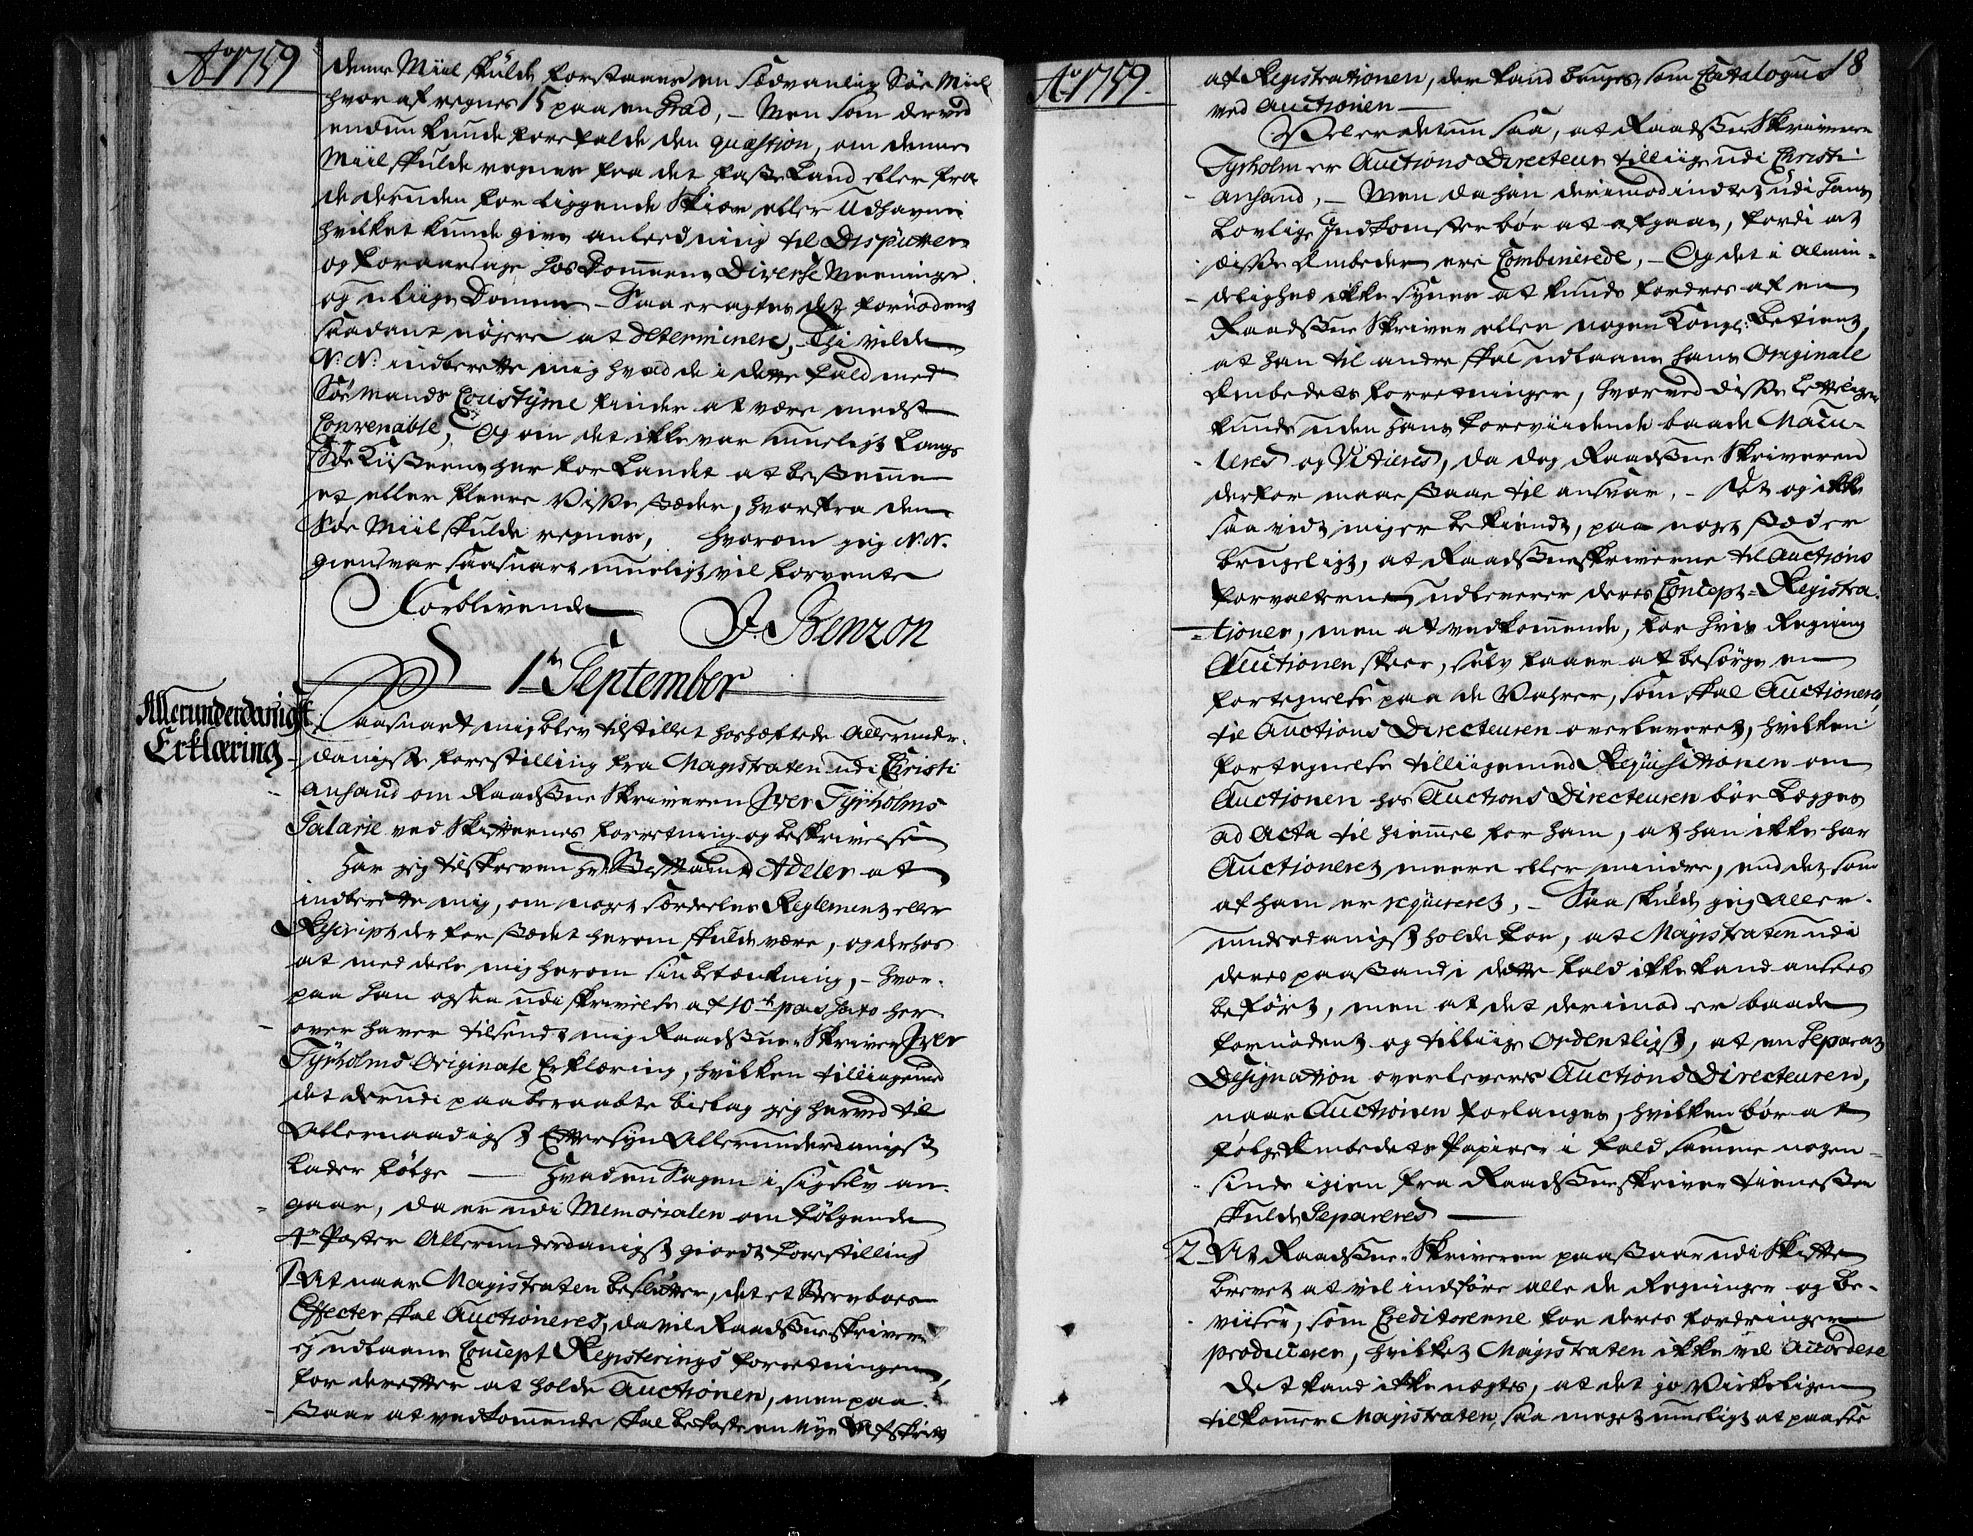 Ao 1759
denne Miil skulde forstaaes en sædvanlig Søe Miil
hvoraf regnes 15 paa en Grad, – Men som derved
endnu kunde forefalde den quæstion, om denne
Miil skulde regnes fra det faste Land eller fra
de deruden for liggende Skiær eller Udhavne
hvilket kunde give anleedning til Disputter
og foraarsage hos Dommerne Diverse Meeninger
og uliige Domme – Saa eragtes det fornødent
saadant nøyere at determinere, – Thi vilde
N: N: indberette mig hvad de i dette fald med
Søe Mands Coustyme finder at være meest
Convenable, Og om det ikke var mueligt langs
Søe Kusterne her for Landet at bestemme
et eller fleere visse stæder, hvorfra den
Søe Miil skulde regnes, hvorom jeg N: N:
giensvar saasnart mueligt vil forvente
Forblivende
J Benzon
1te September
Allerunderdanigst
Erklæring
Saasnart mig blev tilstillet hoshæftede Allerunder-
danigste forestilling fra Magistraten udi Christi
ansand om Raadstue Skriveren Iver Tyrholms
Salarie ved Skifternes forretning og beskrivelse
har jeg tilskreven Hr Stiftamtmd Adeler at
indberette mig, om noget særdeeles Reglement eller
Rescript der for stædet herom skulde være, og derhos
at meddeele mig herom sin betænkning, – hvor-
paa han ogsaa udi skrivelse af 10de passato her-
over haver tilsendt mig Raadstue Skriver Iver
Tyrholms Originale Erklæring, hvilken tilliigemed
det derudi paaberaabte bielag jeg herved til
Allernaadigst Eftersyn Allerunderdanigst
lader følge — Hvad nu Sagen i sig selv an-
gaar, da er udi Memorialen om følgende
4re Poster Allerunderdanigst giordt forestilling
1 At naar Magistraten beslutter, det et Sterboes
Effecter skal Auctioneres, da vil Raadstueskriveren
ej udlaane Concept Registerings forretningen
for derefter at holde Auctionen, men paa-
staar at vedkommende skal bekoste en Nye Afskrift
Ao 1759
18
af Registrationen, der kand bruges som Catalogus
ved Auctionen —
Vel er det nu saa, at Raadstue Skriveren
Tyrholm er Auctions Directeur tilliige udi Christi-
ansand, – Men da han derimod intet udi hans
Lovlige Indkomster bør at afgaae, fordi at
disse Embeder ere Combinerede, – Og det i Almin-
delighed ikke synes at kunde fordres af en
Raadstue Skriver eller nogen Kongl: Betient,
at han til andre skal udlaane hans Originale
Embedets forretninger, hvorved disse
kunde uden hans forevidende baade Macu-
leres og Vitieres, da dog Raadstue Skriveren
derfor maae staae til ansvar, – Det og ikke
saavidt mig er bekiendt, paa noget stæder
brugeligt, at Raadstueskriverne til Auctions
forvalterne udleverer deres Concept-Registra-
tioner, men at vedkommende, for hvis Regning
Auctionen skeer, selv faaer at besørge en
fortegnelse paa de Vahrer, som skal Auctioneres,
til Auctions Directeuren overleveret, hvilken
fortegnelse tilliigemed Reqvisitionen om
Auctionen hos Auctions Directeuren bør lægges
ad Acta til hiemmel for ham, at han ikke har
Auctioneret meere eller mindre, end det som
af ham er reqvireret, – Saa skulde jeg Aller-
underdanigst holde for, at Magistraten udi
deres paastand i dette fald ikke kand ansees
beføyt, men at det derimod er baade
fornødent og tilliige ordentligst, at en Separat
Designation overleveres Auctions Directeuren,
naar Auctionen forlanges, hvilken bør at
følge Embedets Papirer i fald samme nogen-
sinde igien fra Raadstueskriver tienesten
skulde Separeres —
2 At Raadstue-Skriveren paastaar udi Skifte
brevet at vil indføre alle de Regninger og be-
viiser, som Creditorerne for deres fordringer
producerer, hvilket Magistraten ikke vil accordere
Det kand ikke nægtes, at det jo virkeligen
tilkommer Magistraten, saa meget mueligt at paasee